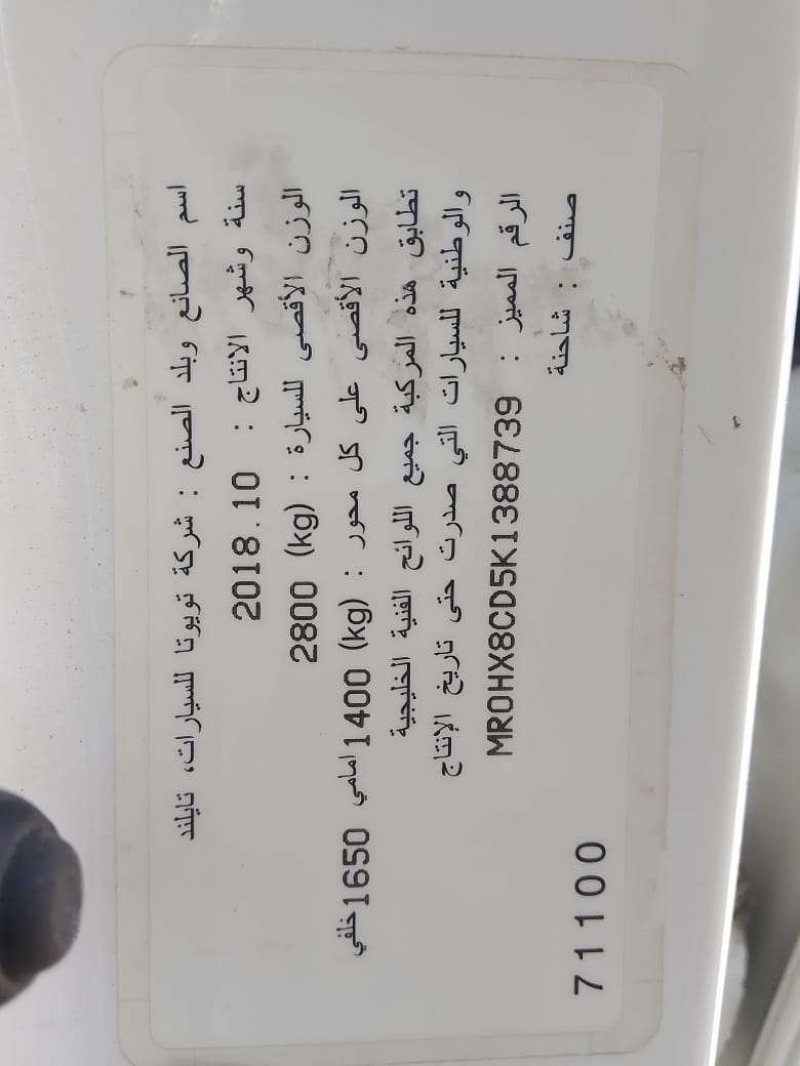 اسم الصانع وبلد الصنع : شركة تويوتا للسيارات، تايلند
سنة وشهر الانتاج : 2018.10
الوزن الأقصى للسيارة : (kg) 2800
الوزن الأقصى على كل محور : (kg) 1400 امامي 1650 خلفي
تطابق هذه المركبة جميع اللوائح الفنية الخليجية
والوطنية للسيارات التي صدرت حتى تاريخ الإنتاج
الرقم المميز : MR0HX8CD5K1388739
صنف : شاحنة
71100